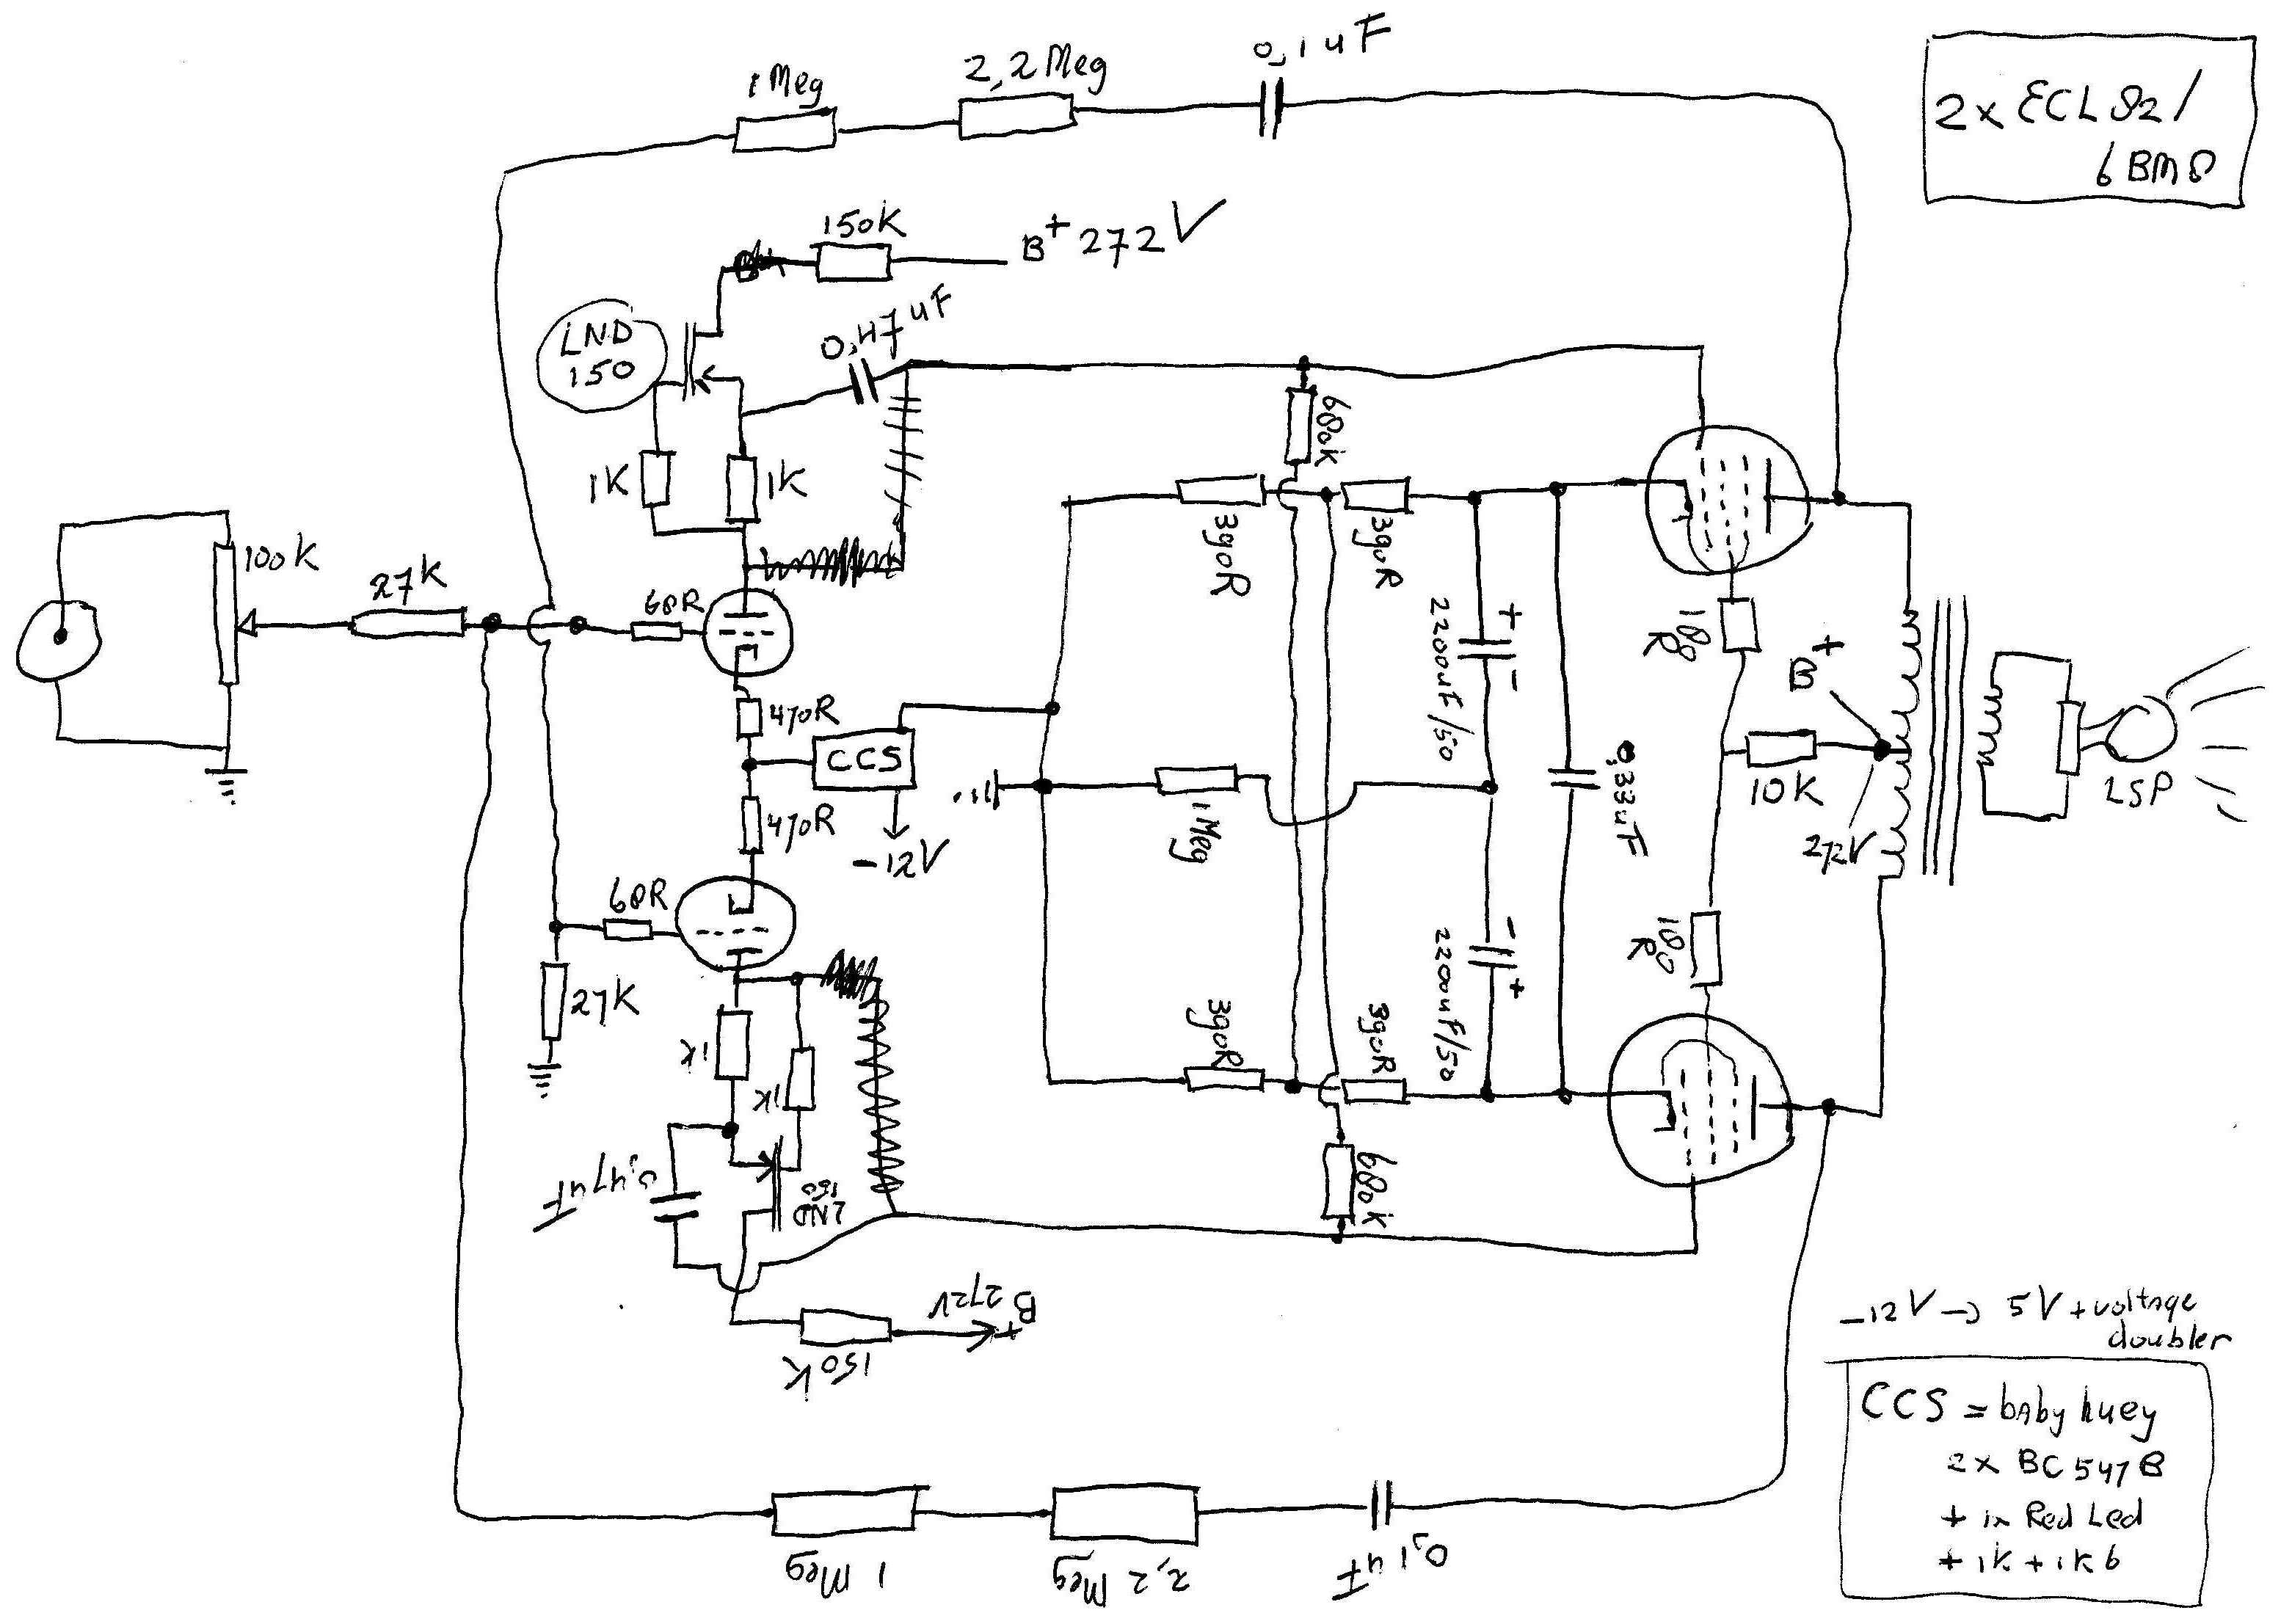 0,1uF
2,2Meg
1Meg
2x ECL82/
6BM8
150K
B+ 272V
LND
150
0,47uF
680K
1K
1K
390R
390R
100K
27K
68R
2200uF/50
+
-
100
R
B+
470R
CCS
0,33uF
10K
LSP
1Meg
272V
470R
-12V
68R
100
R
-
+
2200uF/50
27K
1K
1K
390R
390R
0,47uF
LND
150
680K
B+
272V
150K
-12V → 5V + voltage
doubler
CCS = baby huey
2x BC547B
+ 1x Red Led
+ 1K + 1K6
1 Meg
2,2 Meg
0,1uF